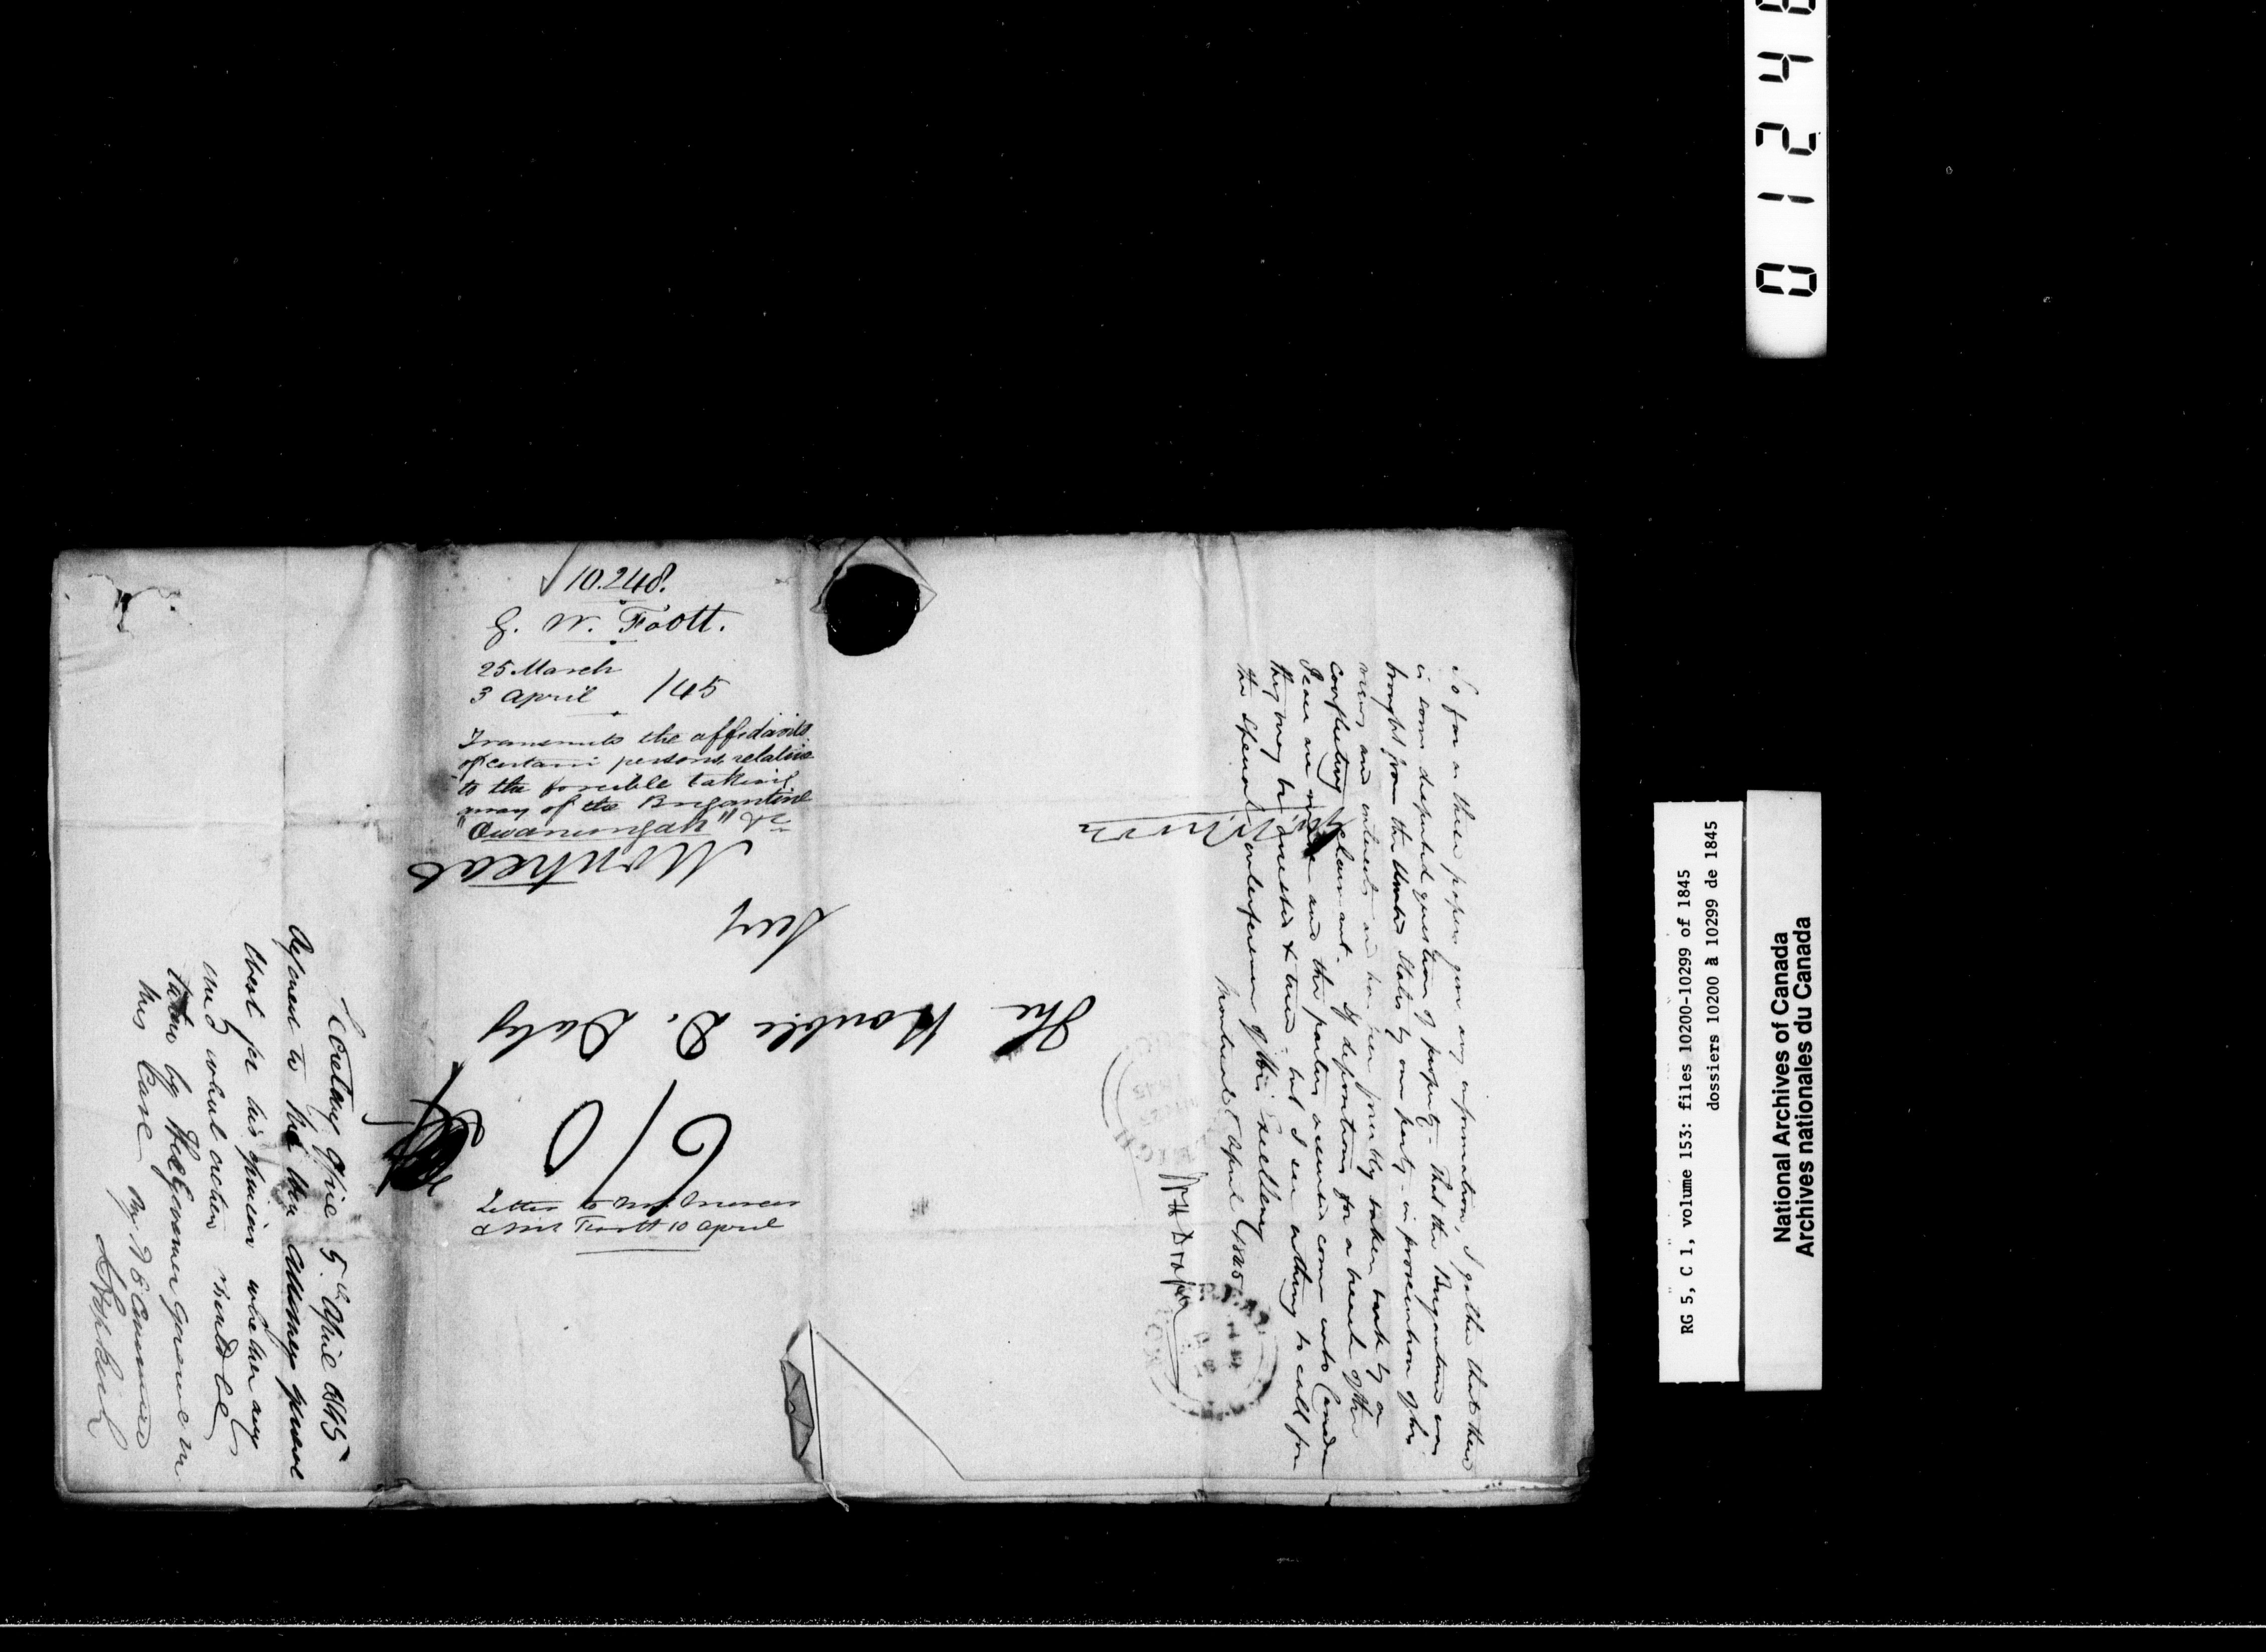 10.248.
G. W. Foott.
25 March
3 April /45
Transmits the affidavits
of certain persons, relative
to the forcible taking
away of the Brigantine
"Owanungah" &c
Letter to Mr
& Mr Foott 10 April
Montreal
Secy
The Honble D. Daly
6/0
Secretary Office 5th April 1845
Referred to the Attorney General
West for his opinion whether any
and what action should be
taken by the Government in
this Case
By Command
So far as these papers give any information, I gather that there
is some disputed question of property - that the Brigantine was
brought from the United States by one party in prosecution of his
views and interests and has been forcibly taken back by a
conflicting claimant. If depositions for a breach of the
Peace are made and the parties accused come into Canada
they may be arrested & tried: but I see nothing to call for
the special interference of His Excellency
Montreal April 1845
W H Draper
01248
RG 5, C 1, volume 153: files 10200-10299 of 1845
dossiers 10200 à 10299 de 1845
National Archives of Canada
Archives nationales du Canada